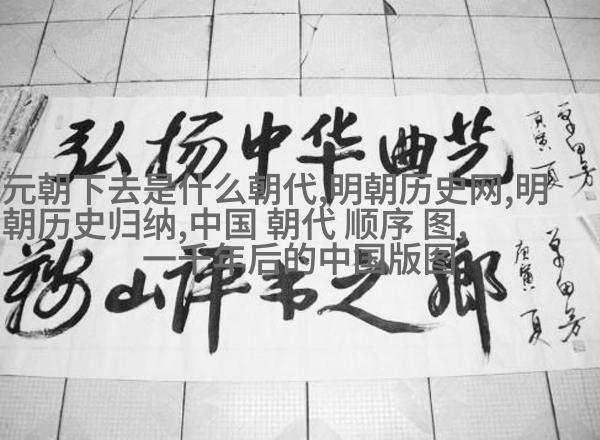 弘扬中华曲艺
庚寅夏
单田芳
元朝下去是什么朝代,明朝历史网,明
朝历史归纳,中国 朝代 顺序 图,
一千年后的中国版图
鞍山评书之鄉
庚寅夏
单田芳